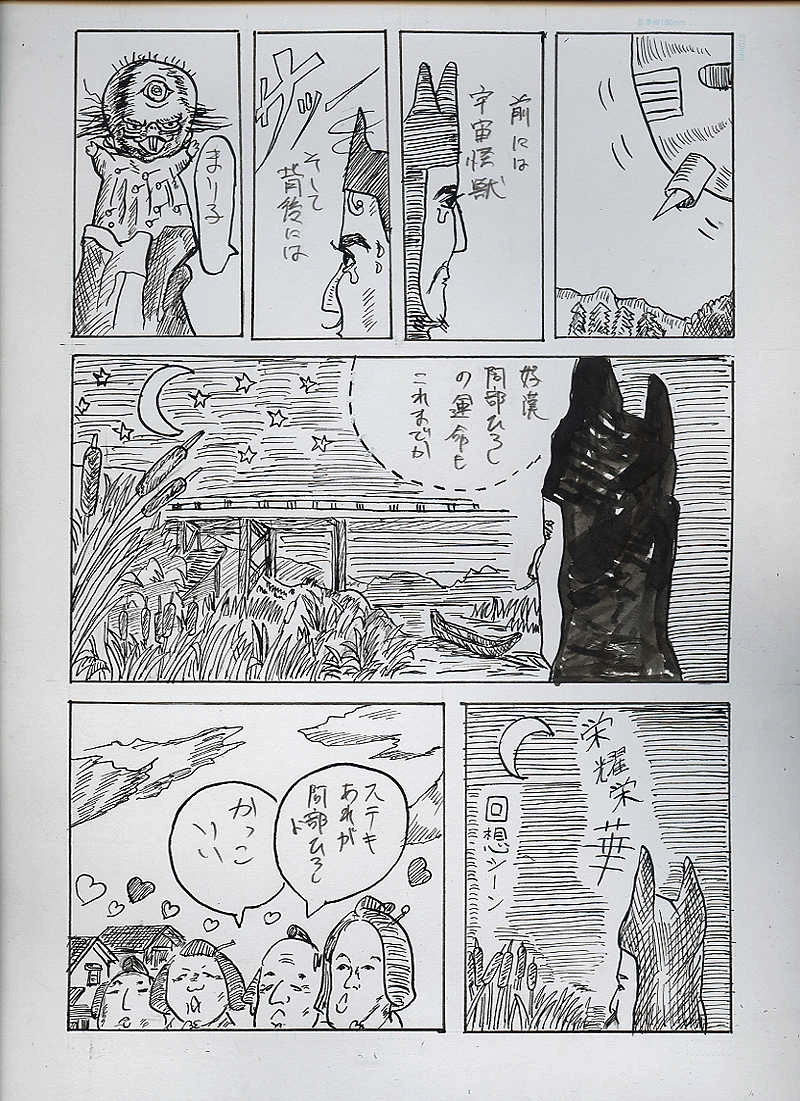 前には
宇宙怪獣
サッー
そして
背後には
まり子
好漢
阿部ひろし
の運命も
これまでか
栄耀栄華
回想シーン
ステキ
あれが
阿部ひろし
ト
かっこ
いい